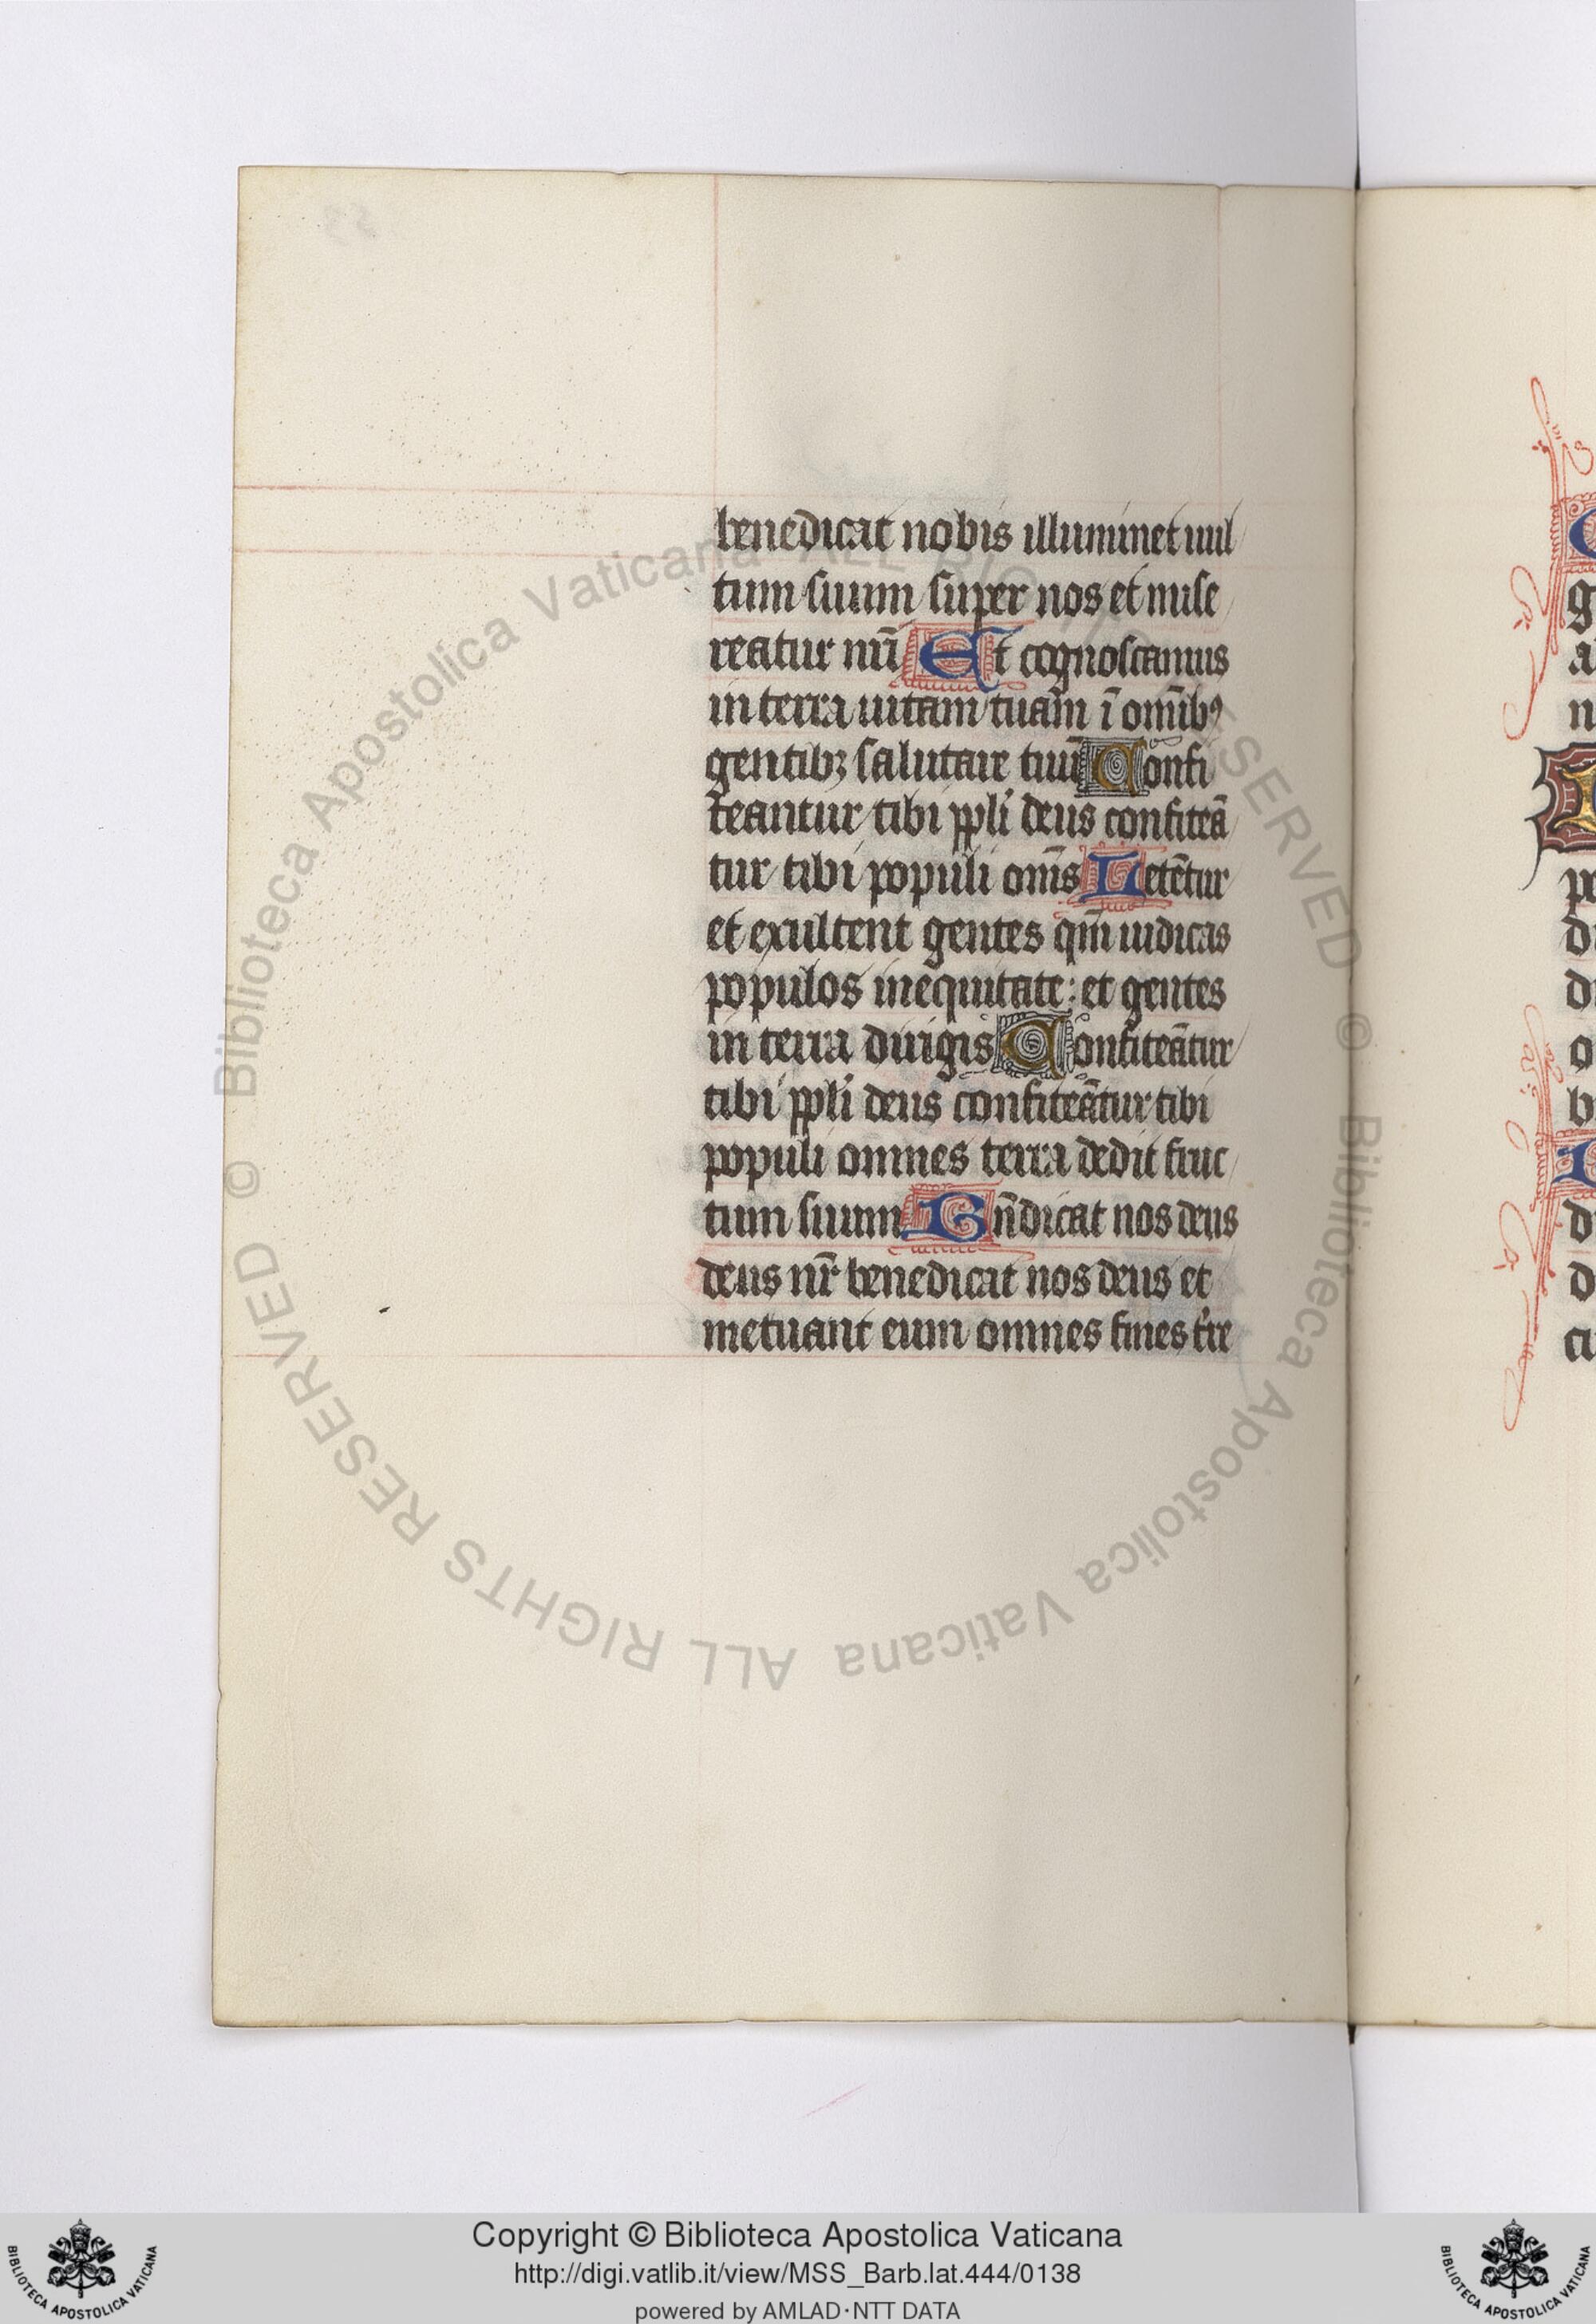 benedicat nobis illuminet uul
tum suum super nos et mise
reatur nr̄i Et cognoscamus
in terra uitam tuam ī omībꝰ
gentibꝫ salutare tuū Confi
teantur tibi ppl̄i deus confiteā
tur tibi populi om̄s Letētur
et exultent gentes qm̄ iudicas
populos inequitate: et gentes
in terra dirigis Confiteātur
tibi ppl̄i deus confiteātur tibi
populi omnes terra dedit fruc
tum suum Bn̄dicat nos deus
deus nr̄ benedicat nos deus et
metuant eum omnes fines t̄re
© Biblioteca Apostolica Vaticana ALL RIGHTS RESERVED © Biblioteca Apostolica Vaticana ALL RIGHTS RESERVED
Copyright © Biblioteca Apostolica Vaticana
http://digi.vatlib.it/view/MSS_Barb.lat.444/0138
powered by AMLAD·NTT DATA
BIBLIOTECA APOSTOLICA VATICANA
BIBLIOTECA APOSTOLICA VATICANA